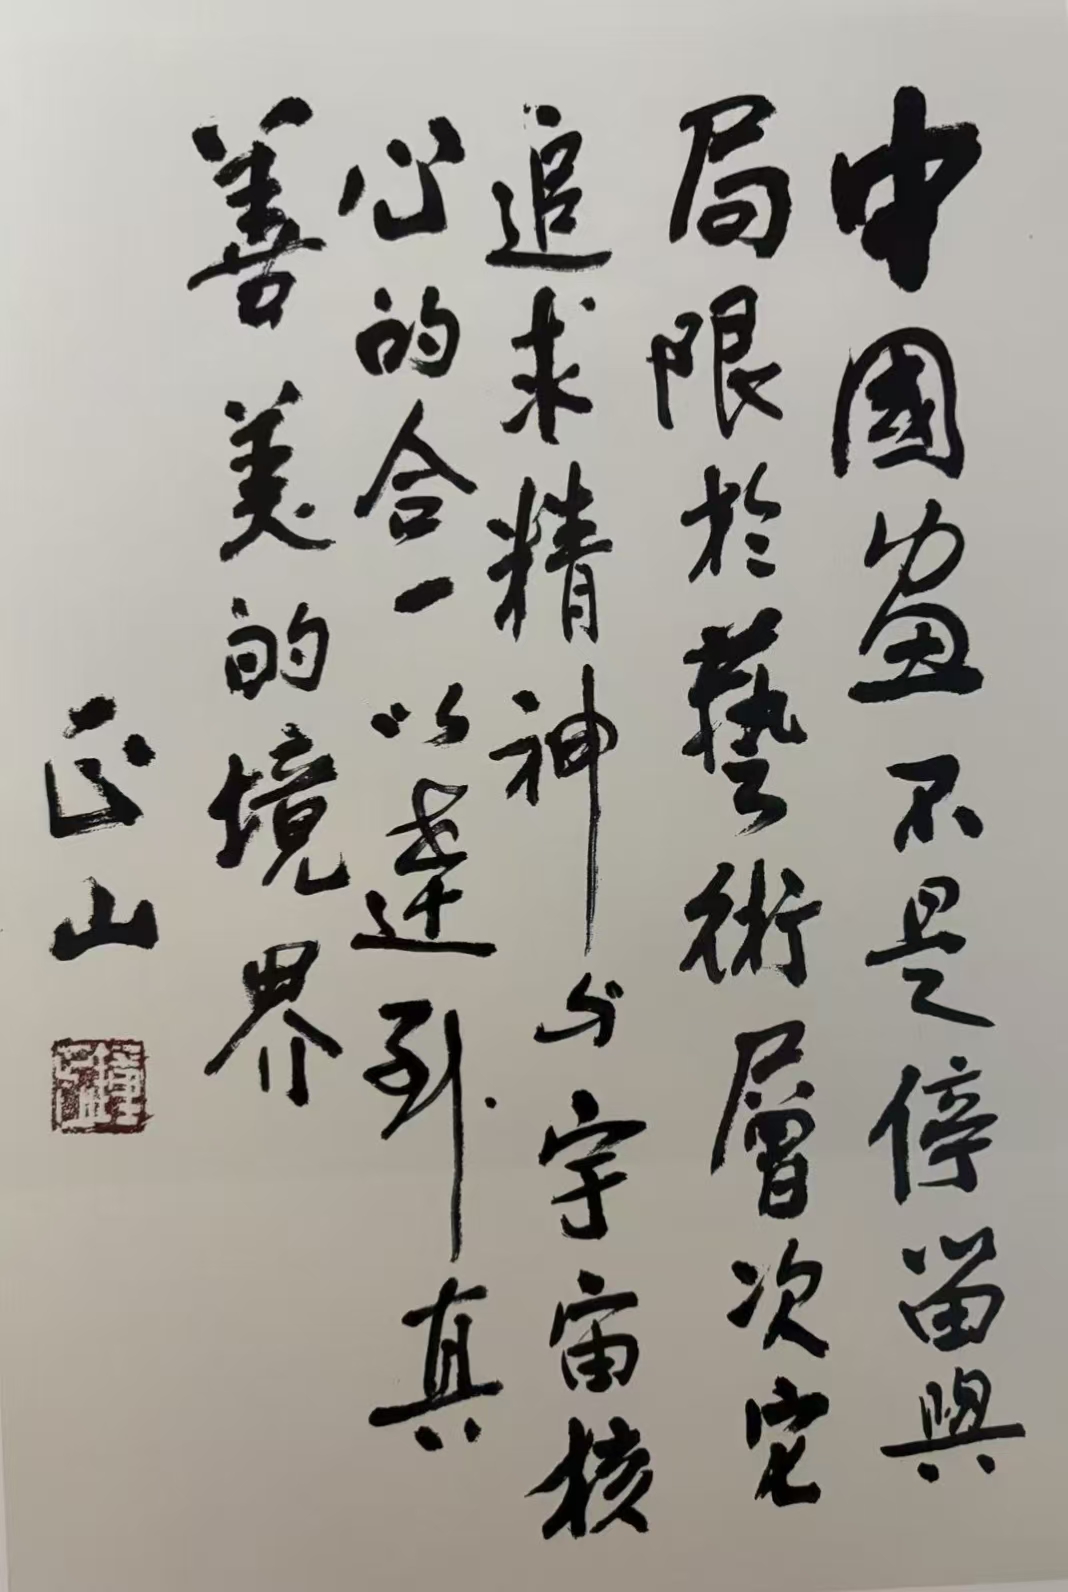 中國畫不是停留與
局限於藝術層次它
追求精神与宇宙核
心的合一以達到真
善美的境界
正山